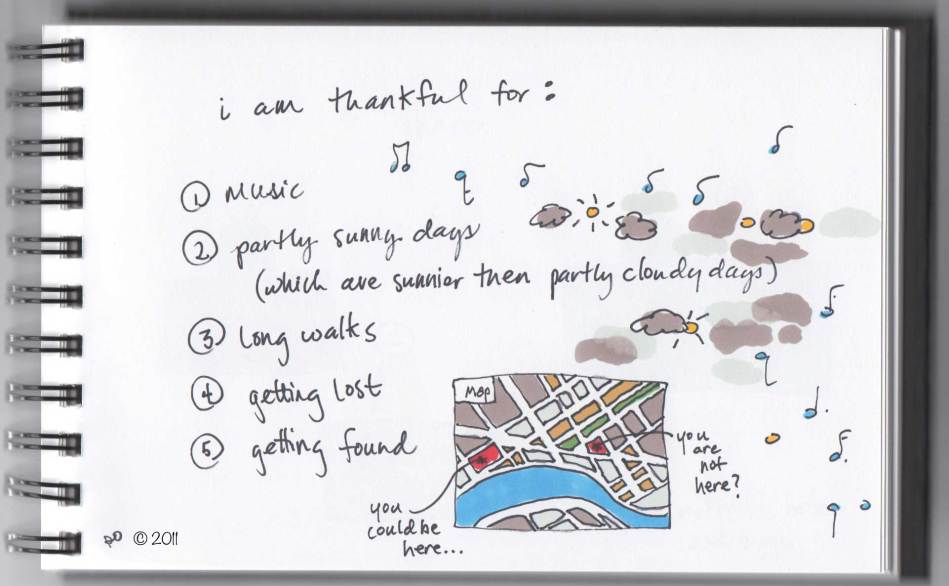 i am thankful for:
① music
② partly sunny days
(which are sunnier then partly cloudy days)
③ long walks
④ getting lost
⑤ getting found
MAP
you
are
not
here?
you
could be
here...
© 2011